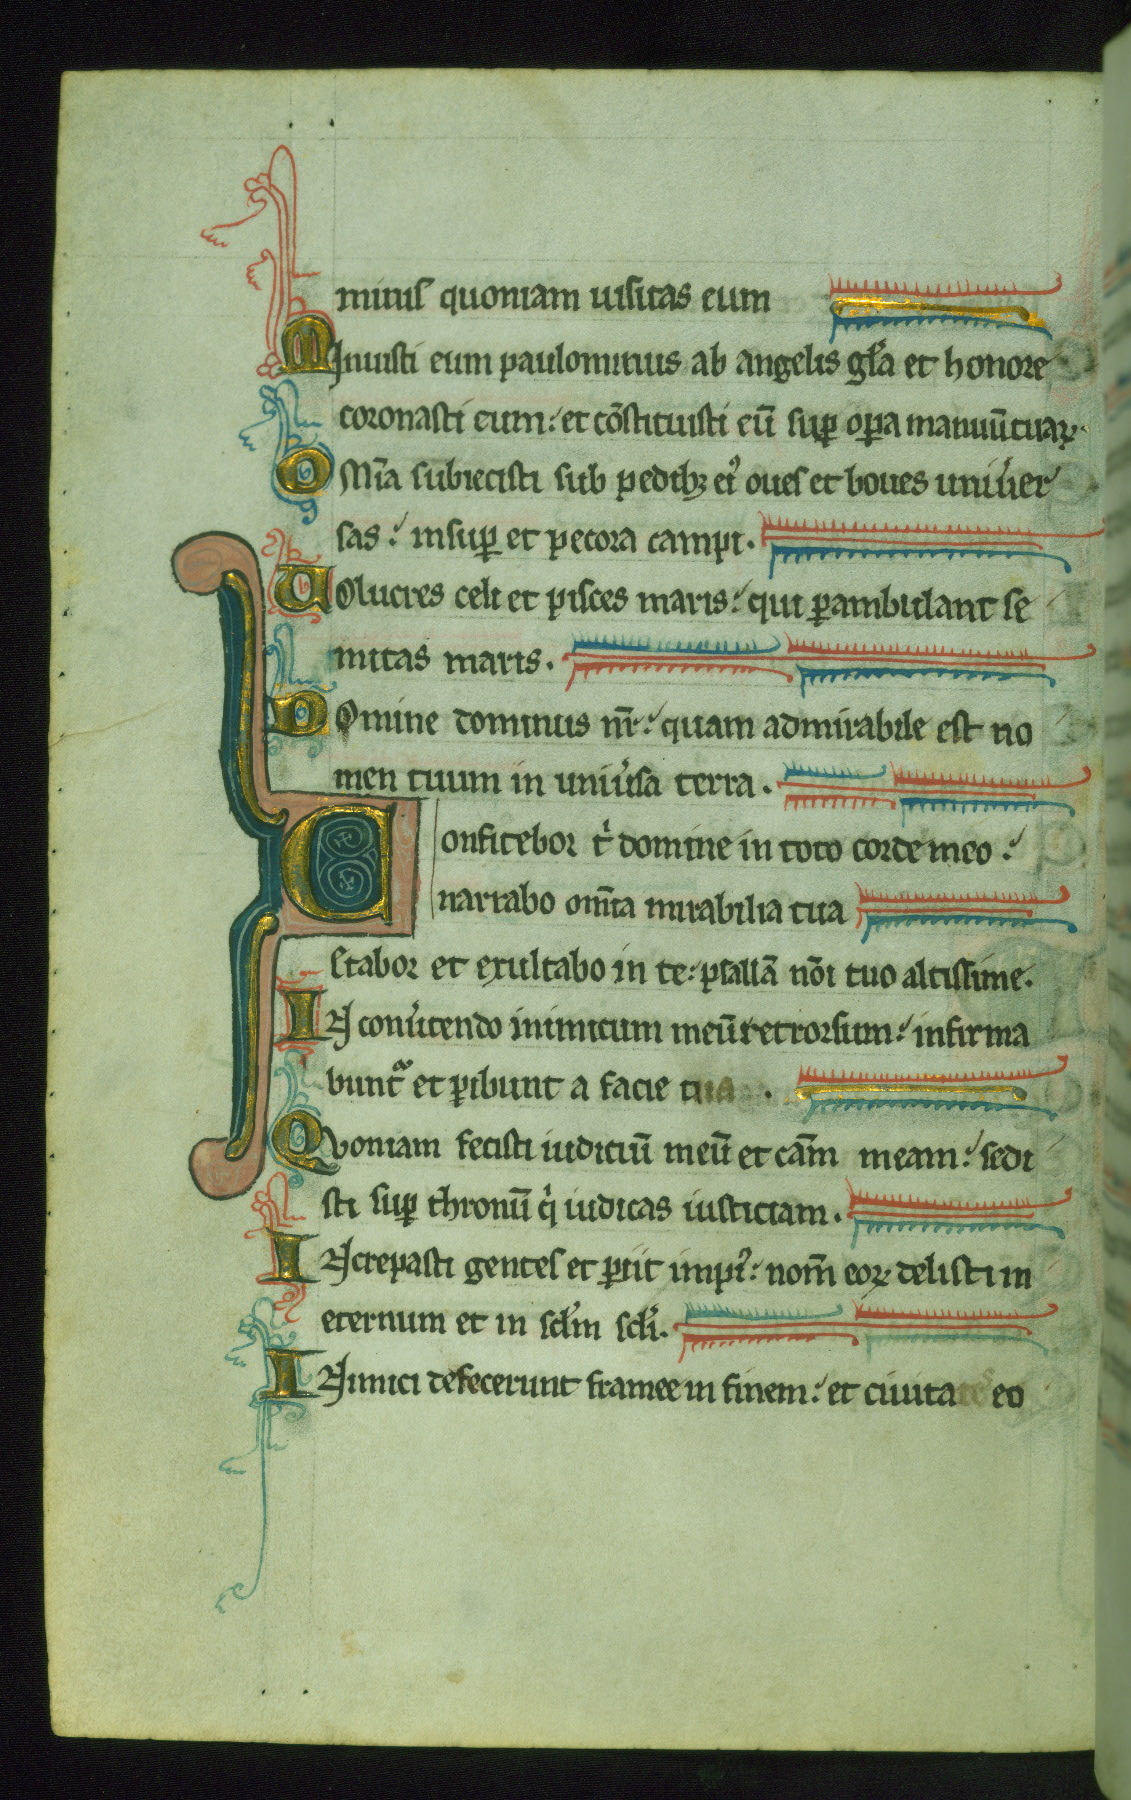 minis quoniam uisitas eum
MInuisti eum paulominus ab angelis gl̃a et honore
coronasti eum: et cõstituisti eũ suꝑ oꝑa manuũ tuaꝝ.
OMĩa subiecisti sub pedibꝫ ei᾽ oues et boues uniuer
sas: insuꝑ et pecora campi.
UOlucres celi et pisces maris: qui ꝑambulant se
mitas maris.
DOmine dominus nr̃: quam admirabile est no
men tuum in uniu᾽sa terra.
Confitebor t᾽ domine in toto corde meo:
narrabo om̃ia mirabilia tua
letabor et exultabo in te: psallã nõi tuo altissime.
IN conu᾽tendo inimicum meũ retrorsum: infirma
bunt᾽ et ꝑibunt a facie tua.
Quoniam fecisti iudiciũ meũ et cãm meam: sedi
sti suꝑ thronũ q᾽ iudicas iusticiam.
INcrepasti gentes et ꝑiit impi᾽: nom̃ eoꝝ delisti in
eternum et in scl᾽m scl᾽i.
INimici defecerunt framee in finem: et ciuitates eo